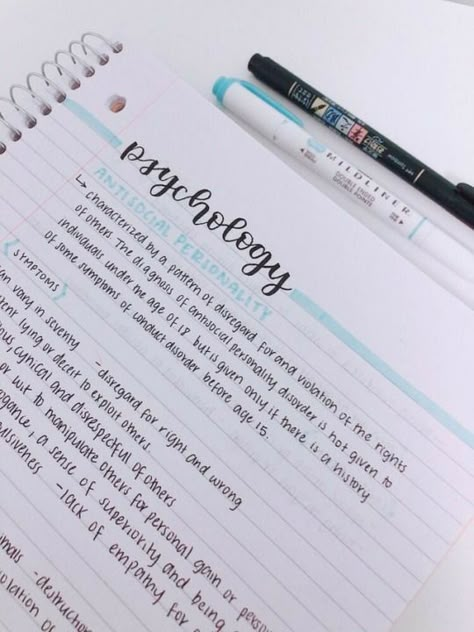 psychology
ANTISOCIAL PERSONALITY
↳ characterized by a pattern of disregard for and violation of the rights
of others. The diagnosis of antisocial personality disorder is not given to
individuals under the age of 18 but is given only if there is a history
of some symptoms of conduct disorder before age 15.
{SYMPTOMS}
can vary in severity -disregard for right and wrong
lying or deceit to exploit others
cynical and disrespectful of others
or wit to manipulate others for personal gain or
a sense of superiority and being
-lack of empathy for
MILDLINER
DOUBLE ENDED